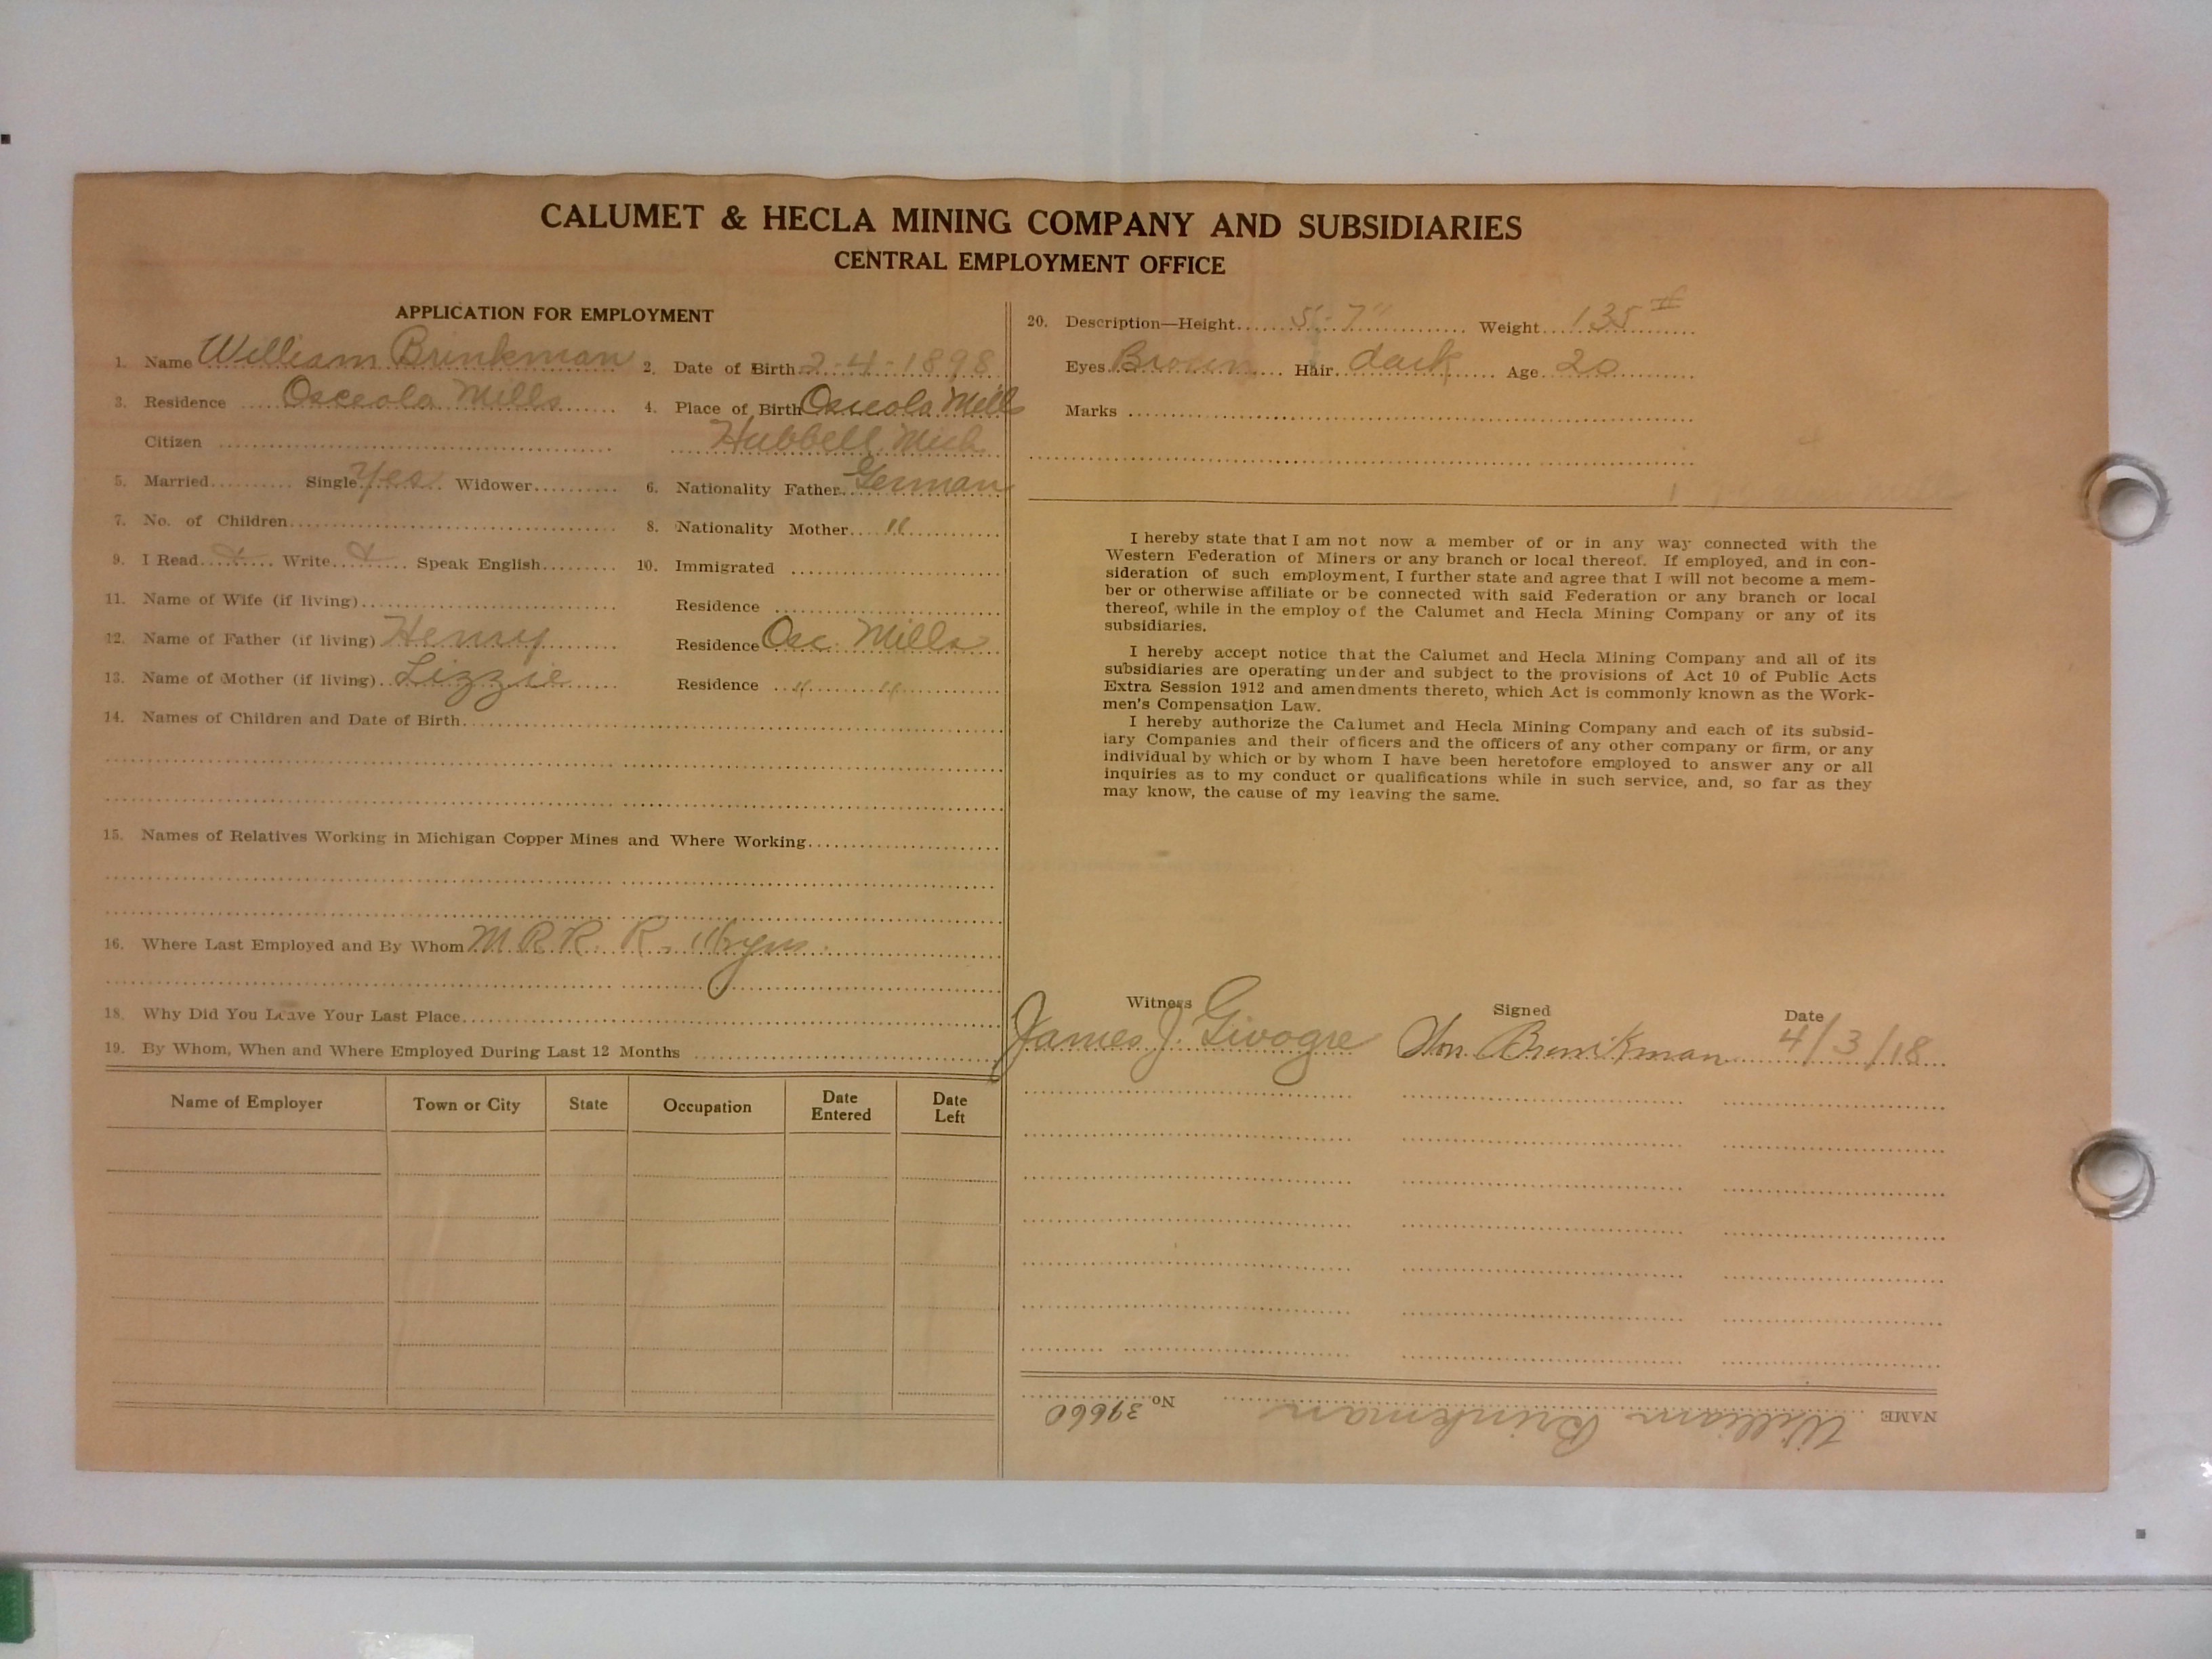 CALUMET & HECLA MINING COMPANY AND SUBSIDIARIES
CENTRAL EMPLOYMENT OFFICE
APPLICATION FOR EMPLOYMENT
1. Name William Brinkman 2. Date of Birth 2-4-1898
3. Residence Osceola Mills 4. Place of Birth Osceola Mills
Citizen Hubbell Mich
5. Married Single Yes Widower 6. Nationality Father German
7. No. of Children 8. Nationality Mother "
9. I Read Write Speak English 10. Immigrated
11. Name of Wife (if living) Residence
12. Name of Father (if living) Henry Residence Osc. Mills
13. Name of Mother (if living) Lizzie Residence " "
14. Names of Children and Date of Birth
15. Names of Relatives Working in Michigan Copper Mines and Where Working
16. Where Last Employed and By Whom M R.R. R.
18. Why Did You Leave Your Last Place
19. By Whom, When and Where Employed During Last 12 Months
Name of Employer Town or City State Occupation Date Entered Date Left
20. Description—Height 5'-7" Weight 135 #
Eyes Brown Hair dark Age 20
Marks
I hereby state that I am not now a member of or in any way connected with the
Western Federation of Miners or any branch or local thereof. If employed, and in con-
sideration of such employment, I further state and agree that I will not become a mem-
ber or otherwise affiliate or be connected with said Federation or any branch or local
thereof, while in the employ of the Calumet and Hecla Mining Company or any of its
subsidiaries.
I hereby accept notice that the Calumet and Hecla Mining Company and all of its
subsidiaries are operating under and subject to the provisions of Act 10 of Public Acts
Extra Session 1912 and amendments thereto, which Act is commonly known as the Work-
men's Compensation Law.
I hereby authorize the Calumet and Hecla Mining Company and each of its subsid-
iary Companies and their officers and the officers of any other company or firm, or any
individual by which or by whom I have been heretofore employed to answer any or all
inquiries as to my conduct or qualifications while in such service, and, so far as they
may know, the cause of my leaving the same.
Witness Signed Date
James J. Givogre Wm. Brinkman 4/3/18
NAME William Brinkman No. 39660